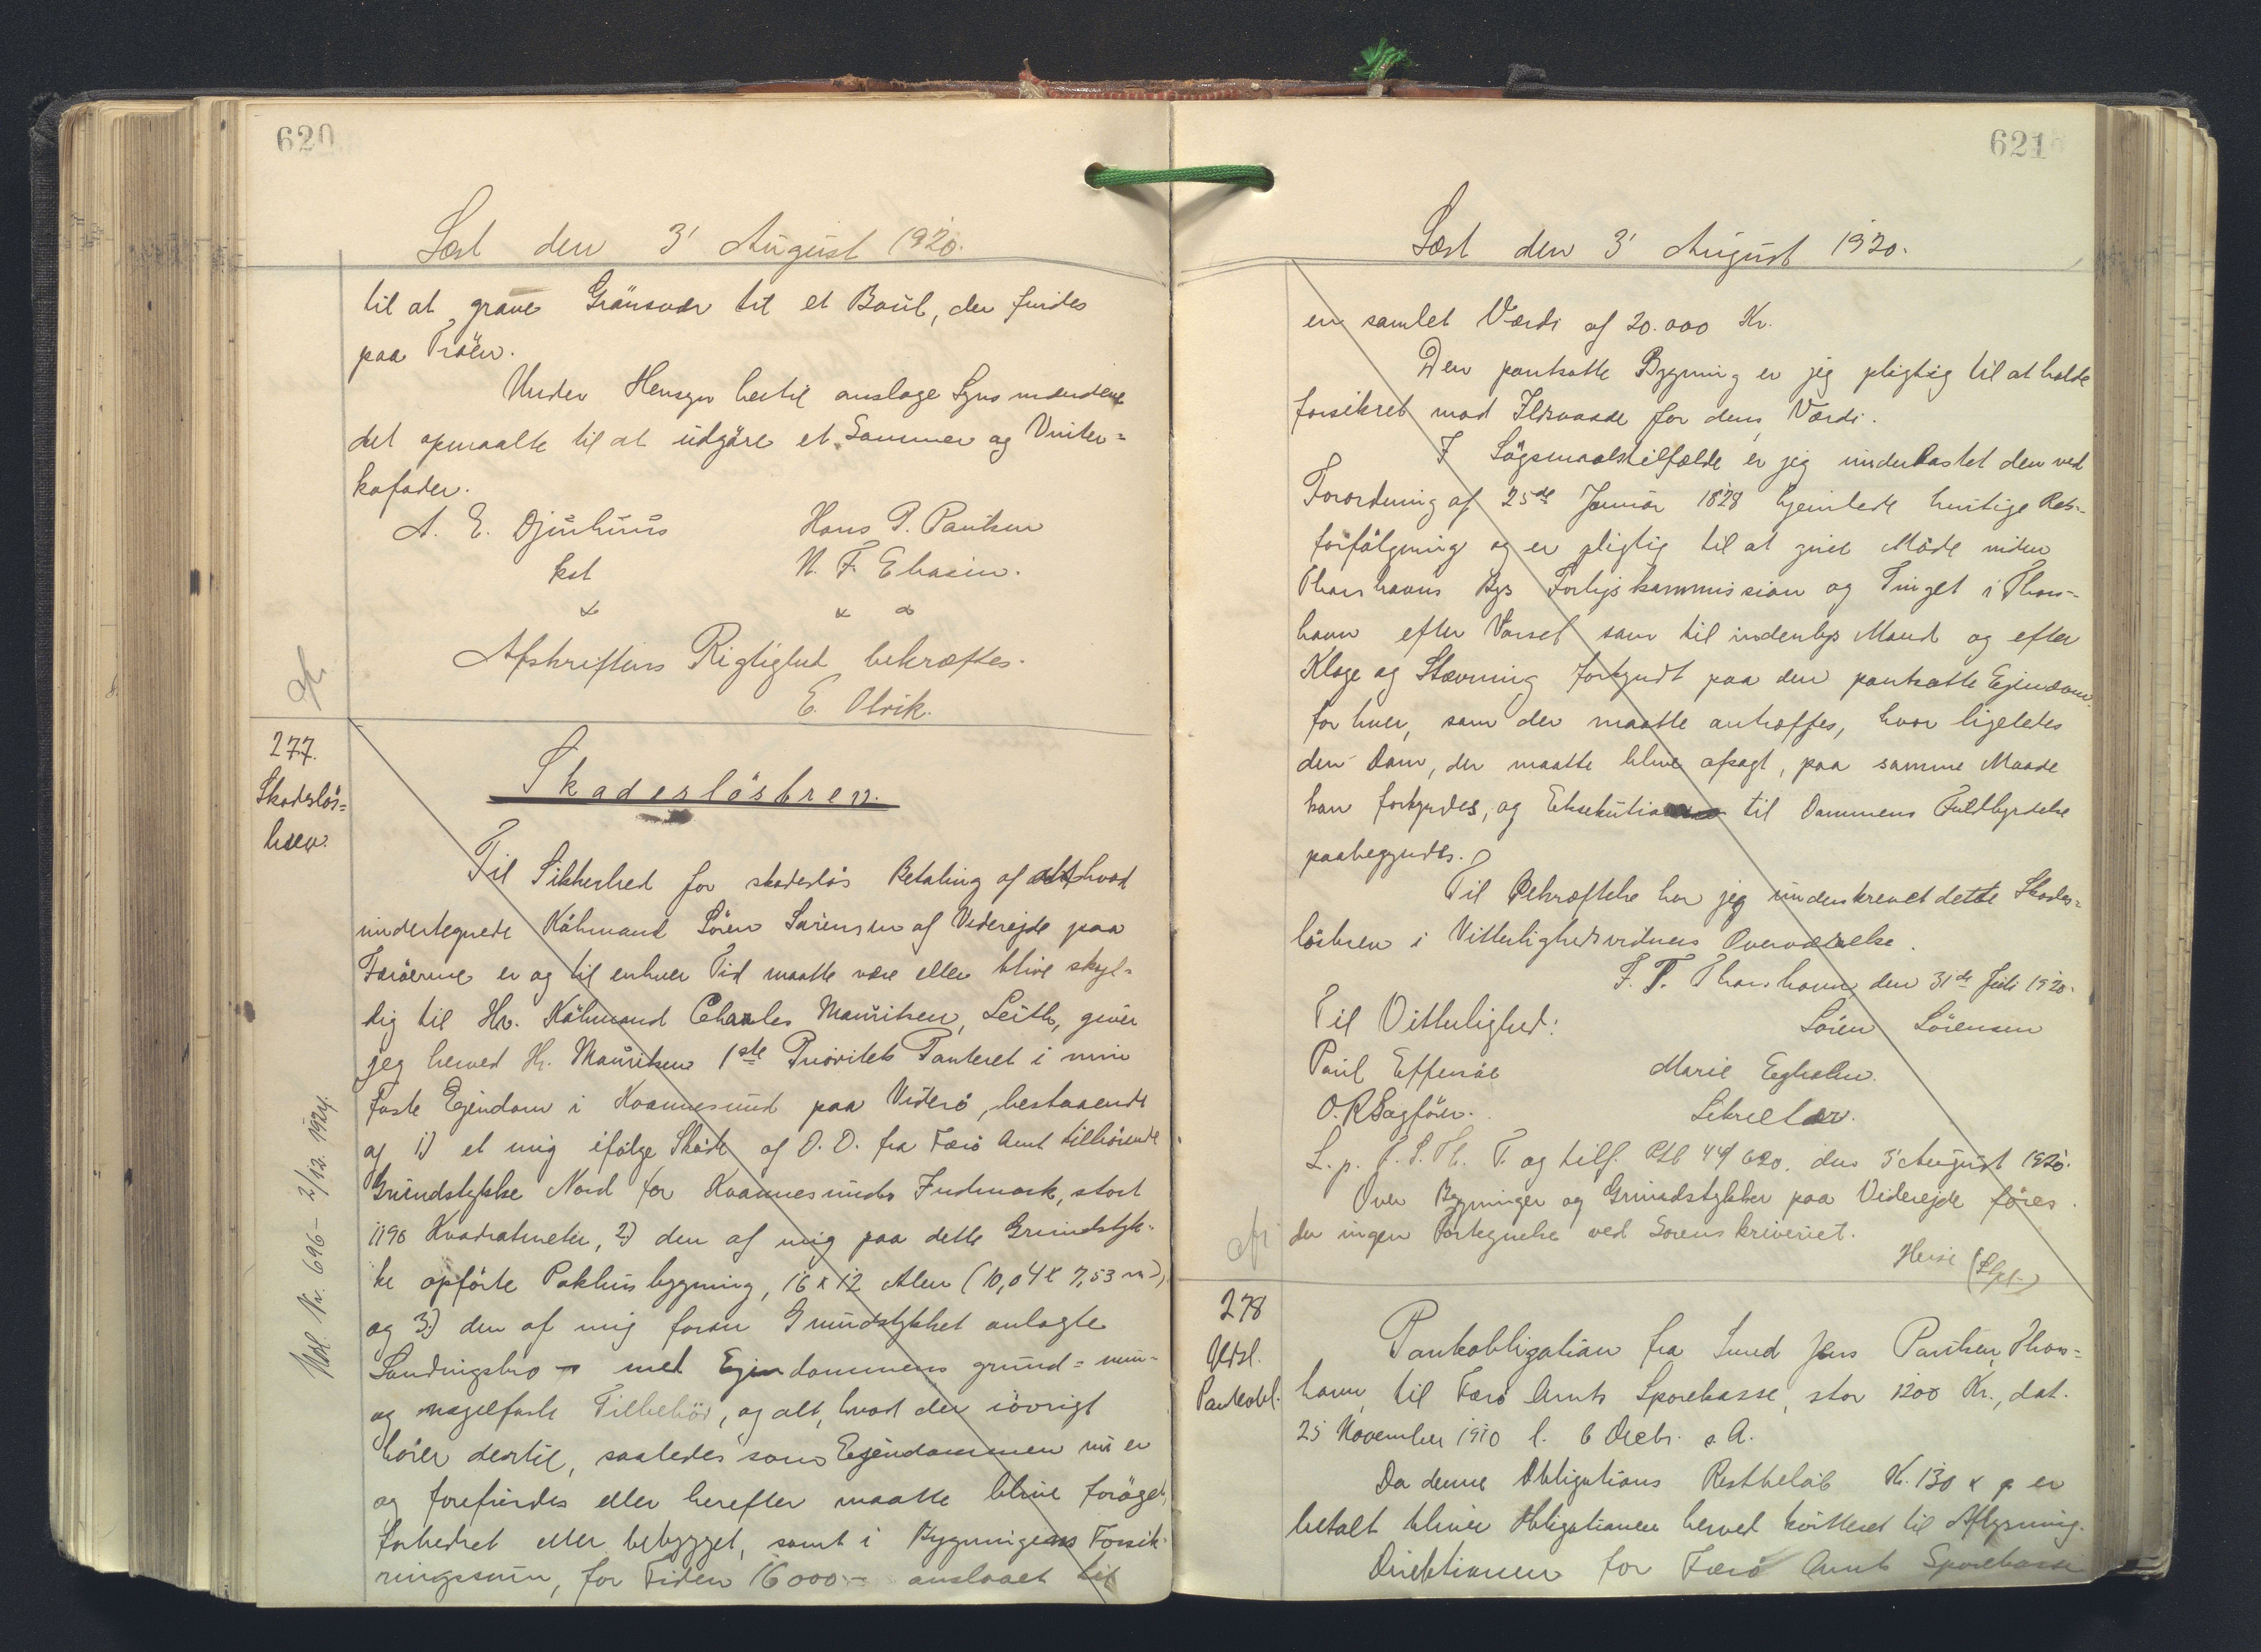 620
Læst den 3' August 1920.
til at grave Grönsvær til et Baul, der findes
paa Tröen.
Under Hensyn hertil anslage Synsmændene
det opmaalte til at udgöre et Sommer og Vinter=
kofoder.
A. E. Djurhuus Hans P. Paulsen
kst N. F.
Afskriftens Rigtighed bekræftes.
E. Olrik.
277.
Skadeslös=
brev.
Skadeslösbrev.
Til Sikkerhed for skadeslös Betaling af alt hvad
undertegnede Köbmand Sören Sörensen af Viderejde paa
Færöerne er og til enhver Tid maatte være eller blive skyl=
dig til Hr. Köbmand Charles Mauritsen, Leith, giver
jeg herved Hr. Mauritsen 1ste Prioritets Panteret i min
faste Ejendom i Kvannesund paa Viderö, bestaaende
af 1) et mig ifölge Sköde af D. D. fra Færö Amt tilhörende
Grundstykke Nord for Kvannesunds Indmark, stort
1190 Kvadratmeter, 2) den af mig paa dette Grundstyk-
ke opförte Pakhusbygning, 16 x 12 Alen (10,04 x 7,53 m),
og 3.) den af mig foran Grundstykket anlagte
Landingsbro med Ejendommens grund= mur-
og nagelfaste Tilbehör, og alt, hvad der iövrigt
hörer dertil, saaledes som Ejendommen nu er
og forefindes eller herefter maatte blive foröget,
forbedret eller bebygget, samt i Bygningens Forsik-
ringssum, for Tiden 16000,- anslaaet til
Modl. Nr. 696 - 2/12. 1924.
621
Læst den 3' August 1920.
en samlet Værdi af 20.000 Kr.
Den pantsatte Bygning er jeg pligtig til at holde
forsikret mod Ildsvaade for dens Værdi.
I Sögsmaalstilfælde er jeg underkastet den ved
Forordning af 25de Januar 1828 hjemlede hurtige Rets-
forfölgning og er pligtig til at give Möde inden
Thorshavns Bys Forligskommission og Tinget i Thors-
havn efter Varsel som til indenbys Mand og efter
Klage og Stævning forkyndt paa den pantsatte Ejendom
for hver, som der maatte antræffes, hvor ligeledes
den Dom, der maatte blive afsagt, paa samme Maade
kan forkyndes, og Eksekution til Dommens Fuldbyrdelse
paabegyndes.
Til Bekræftelse har jeg underskrevet dette Skades=
lösbrev i Vitterlighedsvidners Overværelse.
F. T. Thorshavn, den 31de Juli 1920.
Til Vitterlighed: Sören Sörensen
Paul Effersöe Marie Egholm.
O.R.Sagförer. Sekretær.
L. p. F. S. Th. T. og tilf. Ptb 44/620. den 3' August 1920.
Over Bygninger og Grundstykker paa Viderejde föres
der ingen Fortegnelse ved Sorenskriveriet.
278
Udsl.
Pantobl.
Pantobligation fra Smed Jens Paulsen, Thors=
havn, til Færö Amts Sparekasse, stor 1200 Kr., dat.
25 November 1910 l. 6 Decbr. s. A.
Da denne Obligations Restbelöb Kr. 130 er
betalt bliver Obligationen herved kvitteret til Aflysning.
Direktionen for Færö Amts Sparekasse